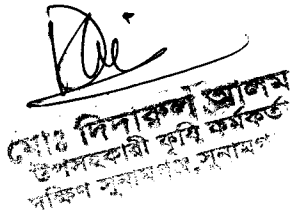 মোঃ দিদারুল আলম
উপসহকারী কৃষি কর্মকর্তা
দক্ষিণ সুনামগঞ্জ, সুনামগঞ্জ